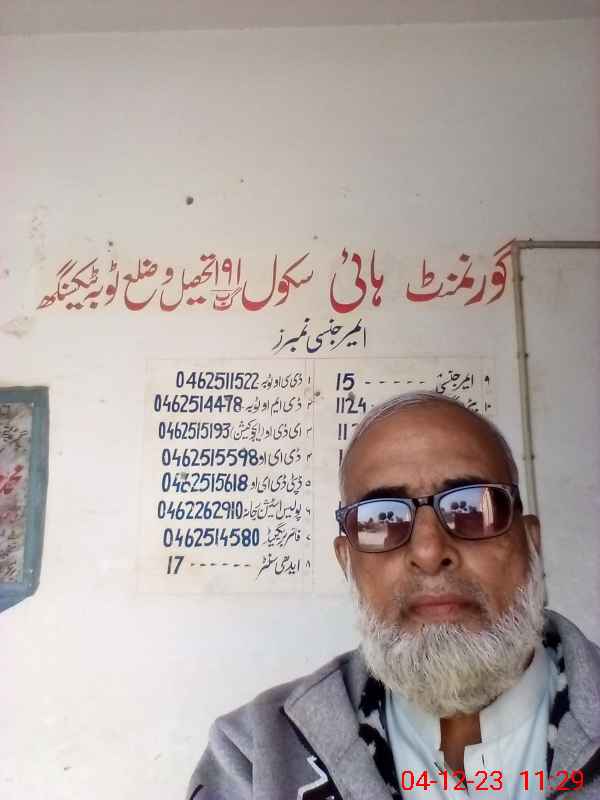 گورنمنٹ ہائی سکول ۱۹۱ گ ب تحصیل و ضلع ٹوبہ ٹیک سنگھ
ایمرجنسی نمبرز
۱ ڈی سی او ٹوبہ 0462511522
۲ ڈی ایم او ٹوبہ 0462514478
۳ ای ڈی او ایجوکیشن 0462515193
۴ ڈی ای او 0462515598
۵ ڈپٹی ڈی ای او 0462515618
۶ پولیس اسٹیشن تھانہ 0462262910
۷ فائر بریگیڈ 0462514580
۸ ایدھی سنٹر ------ 17
۹ ایمرجنسی ----- 15
۱۰ 1124
04-12-23 11:29